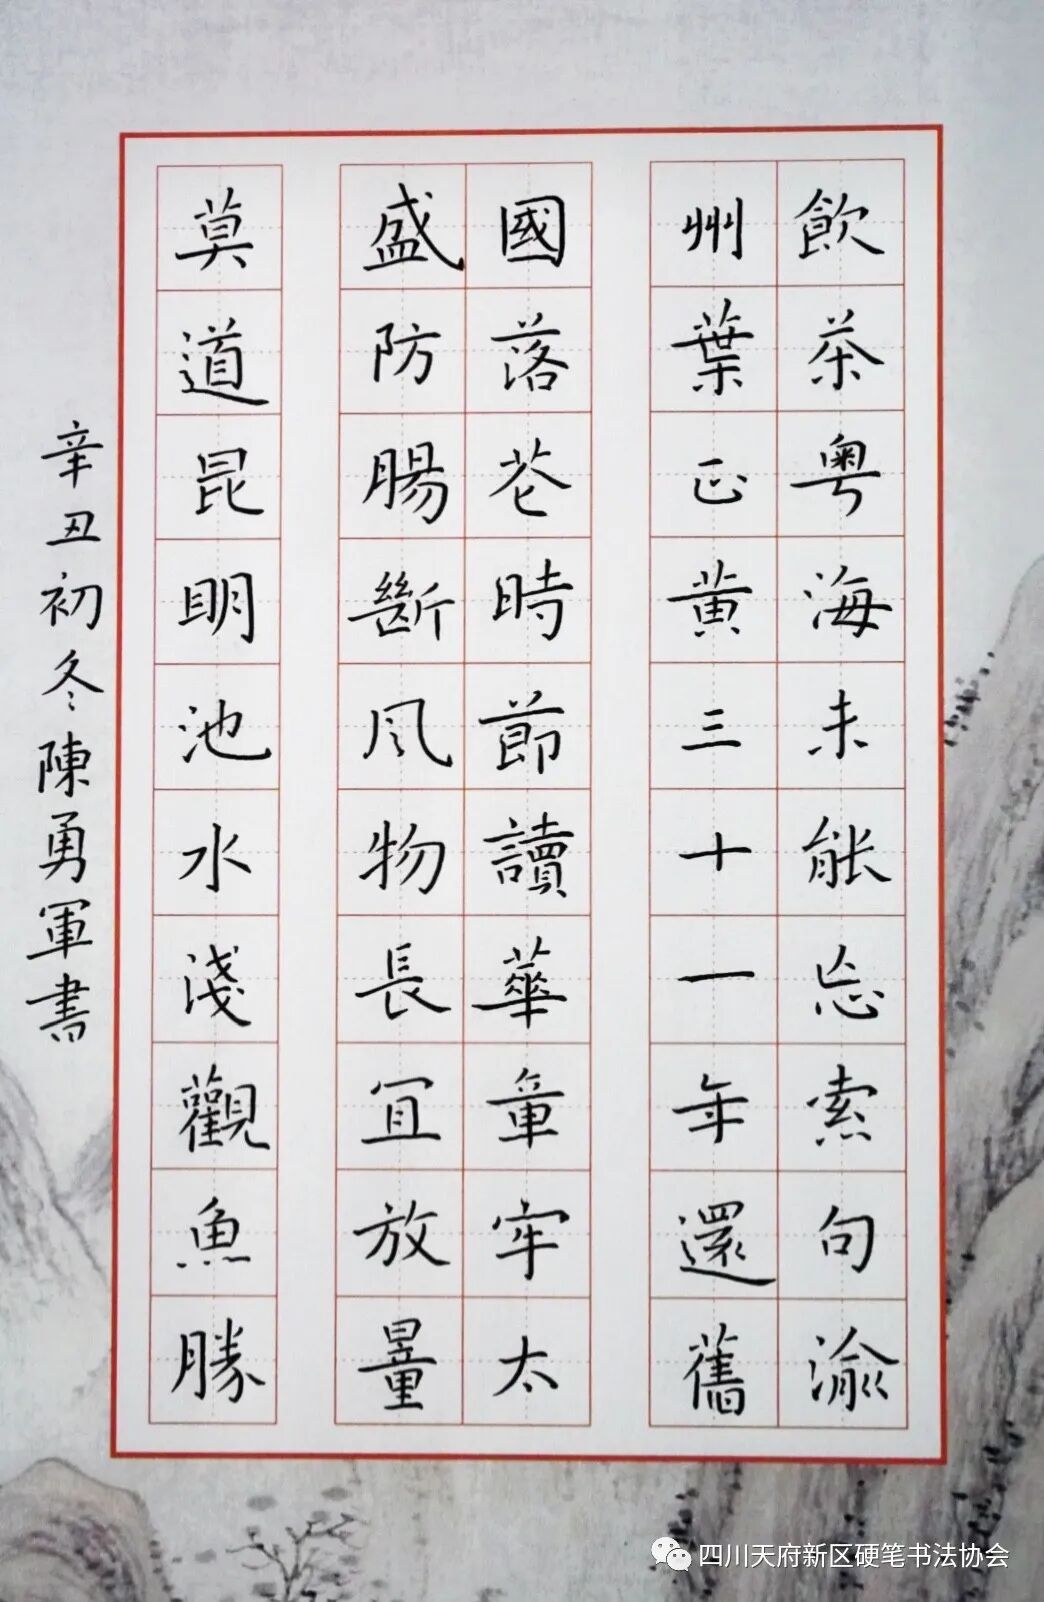 飲茶粤海未能忘索句渝
州葉正黄三十一年還舊
國落花時節讀華章牢太
盛防腸斷風物長宜放量
莫道昆明池水淺觀魚勝
辛丑初冬陳勇軍書
四川天府新区硬笔书法协会